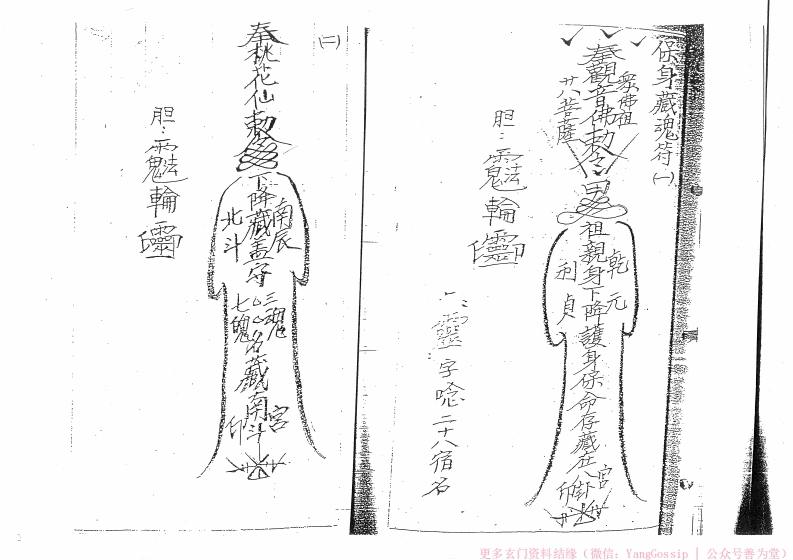 保身藏魂符(一)
眾佛祖
奉觀音佛勅令
廿八菩薩
祖親身下降護身保命存藏在八卦宮
乾元
利貞
印
胆:
輪
靈字唸二十八宿名
(二)
奉桃花仙勅令
下降藏蓋守
南辰
北斗
三魂
七魄
名藏南斗宮
印
胆:
輪
更多玄门资料结缘（微信：YangGossip | 公众号善为堂）